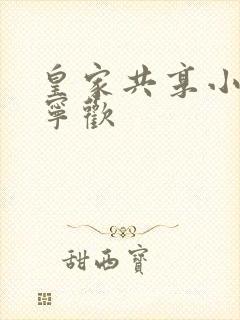 皇家共享小
寧歡
甜西寶